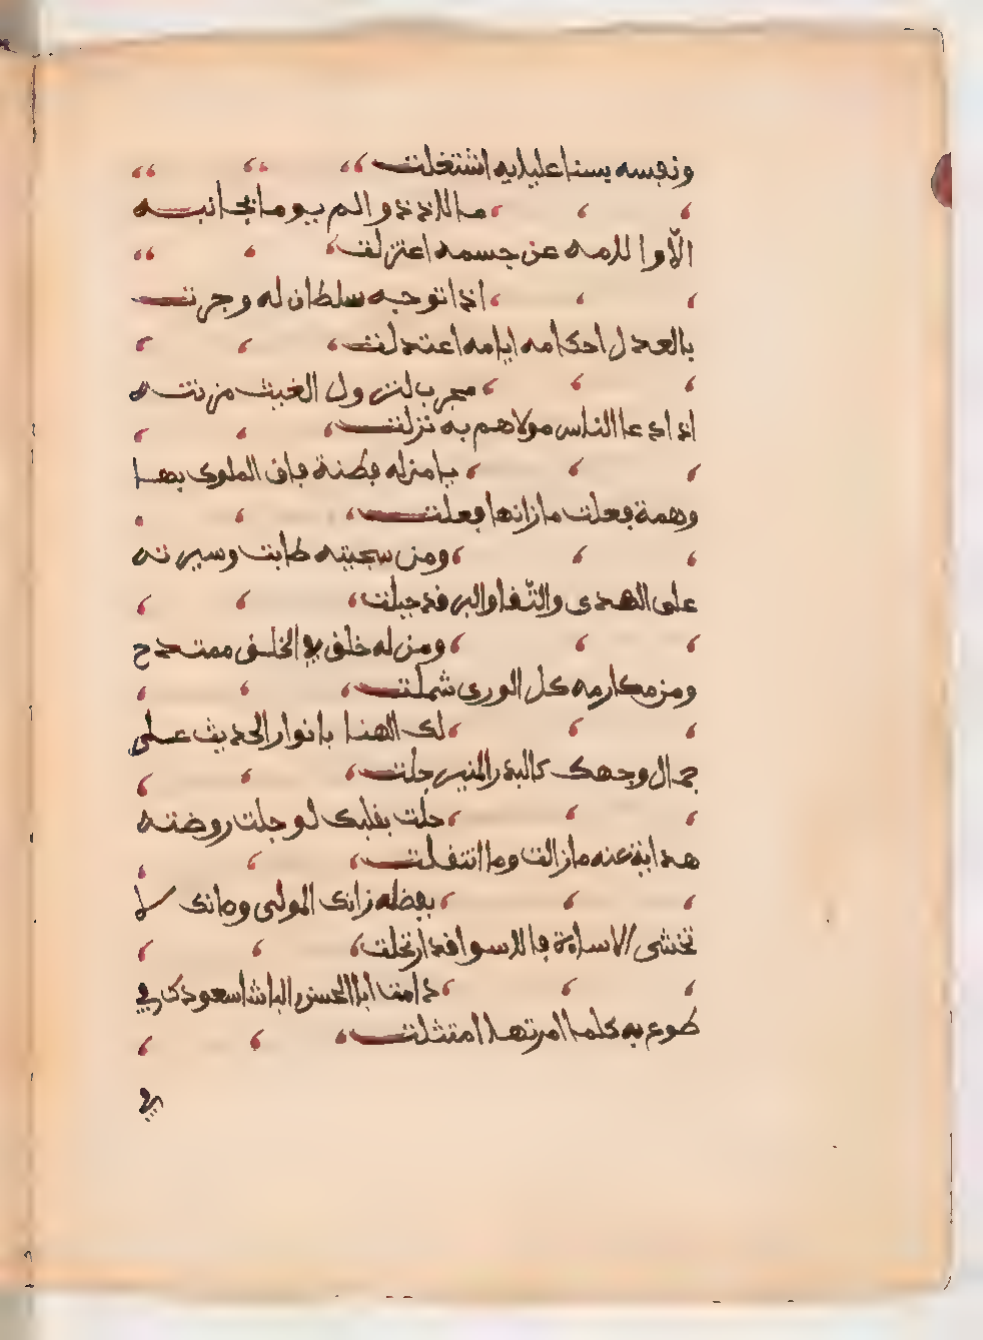 ونفسه بسنا عليايه اشتغلت
ما للاذى والم يوما تجانبه
الا والامه عن جسمه اعتزلت
اذا توجه سلطان له وجرت
بالعدل احكامه ايامه اعتدلت
مجرب لنزول الغيث مزنته
اذا دعا الناس مولاهم به نزلت
يا من له فطنة فاق الملوك بها
وهمة فعلت ما زانها فعلت
ومن سجيته طابت وسيرته
على الهدى والتقا والبر قد جبلت
ومن له خلق في الخلق ممتدح
ومن مكارمه كل الورى شملت
لك الهنا بانوار الحديث على
جمال وجهك كالبدر المنير جلت
حلت بقلبك لو جلت روضته
هدايته عنه ما زالت وما انتقلت
بفضله زانك المولى وصانك لا
تخشى الاساءة فالاسوا قد ارتحلت
دامت ابا الحسن الباشا سعودك في
طوع به كلما امرتها امتثلت